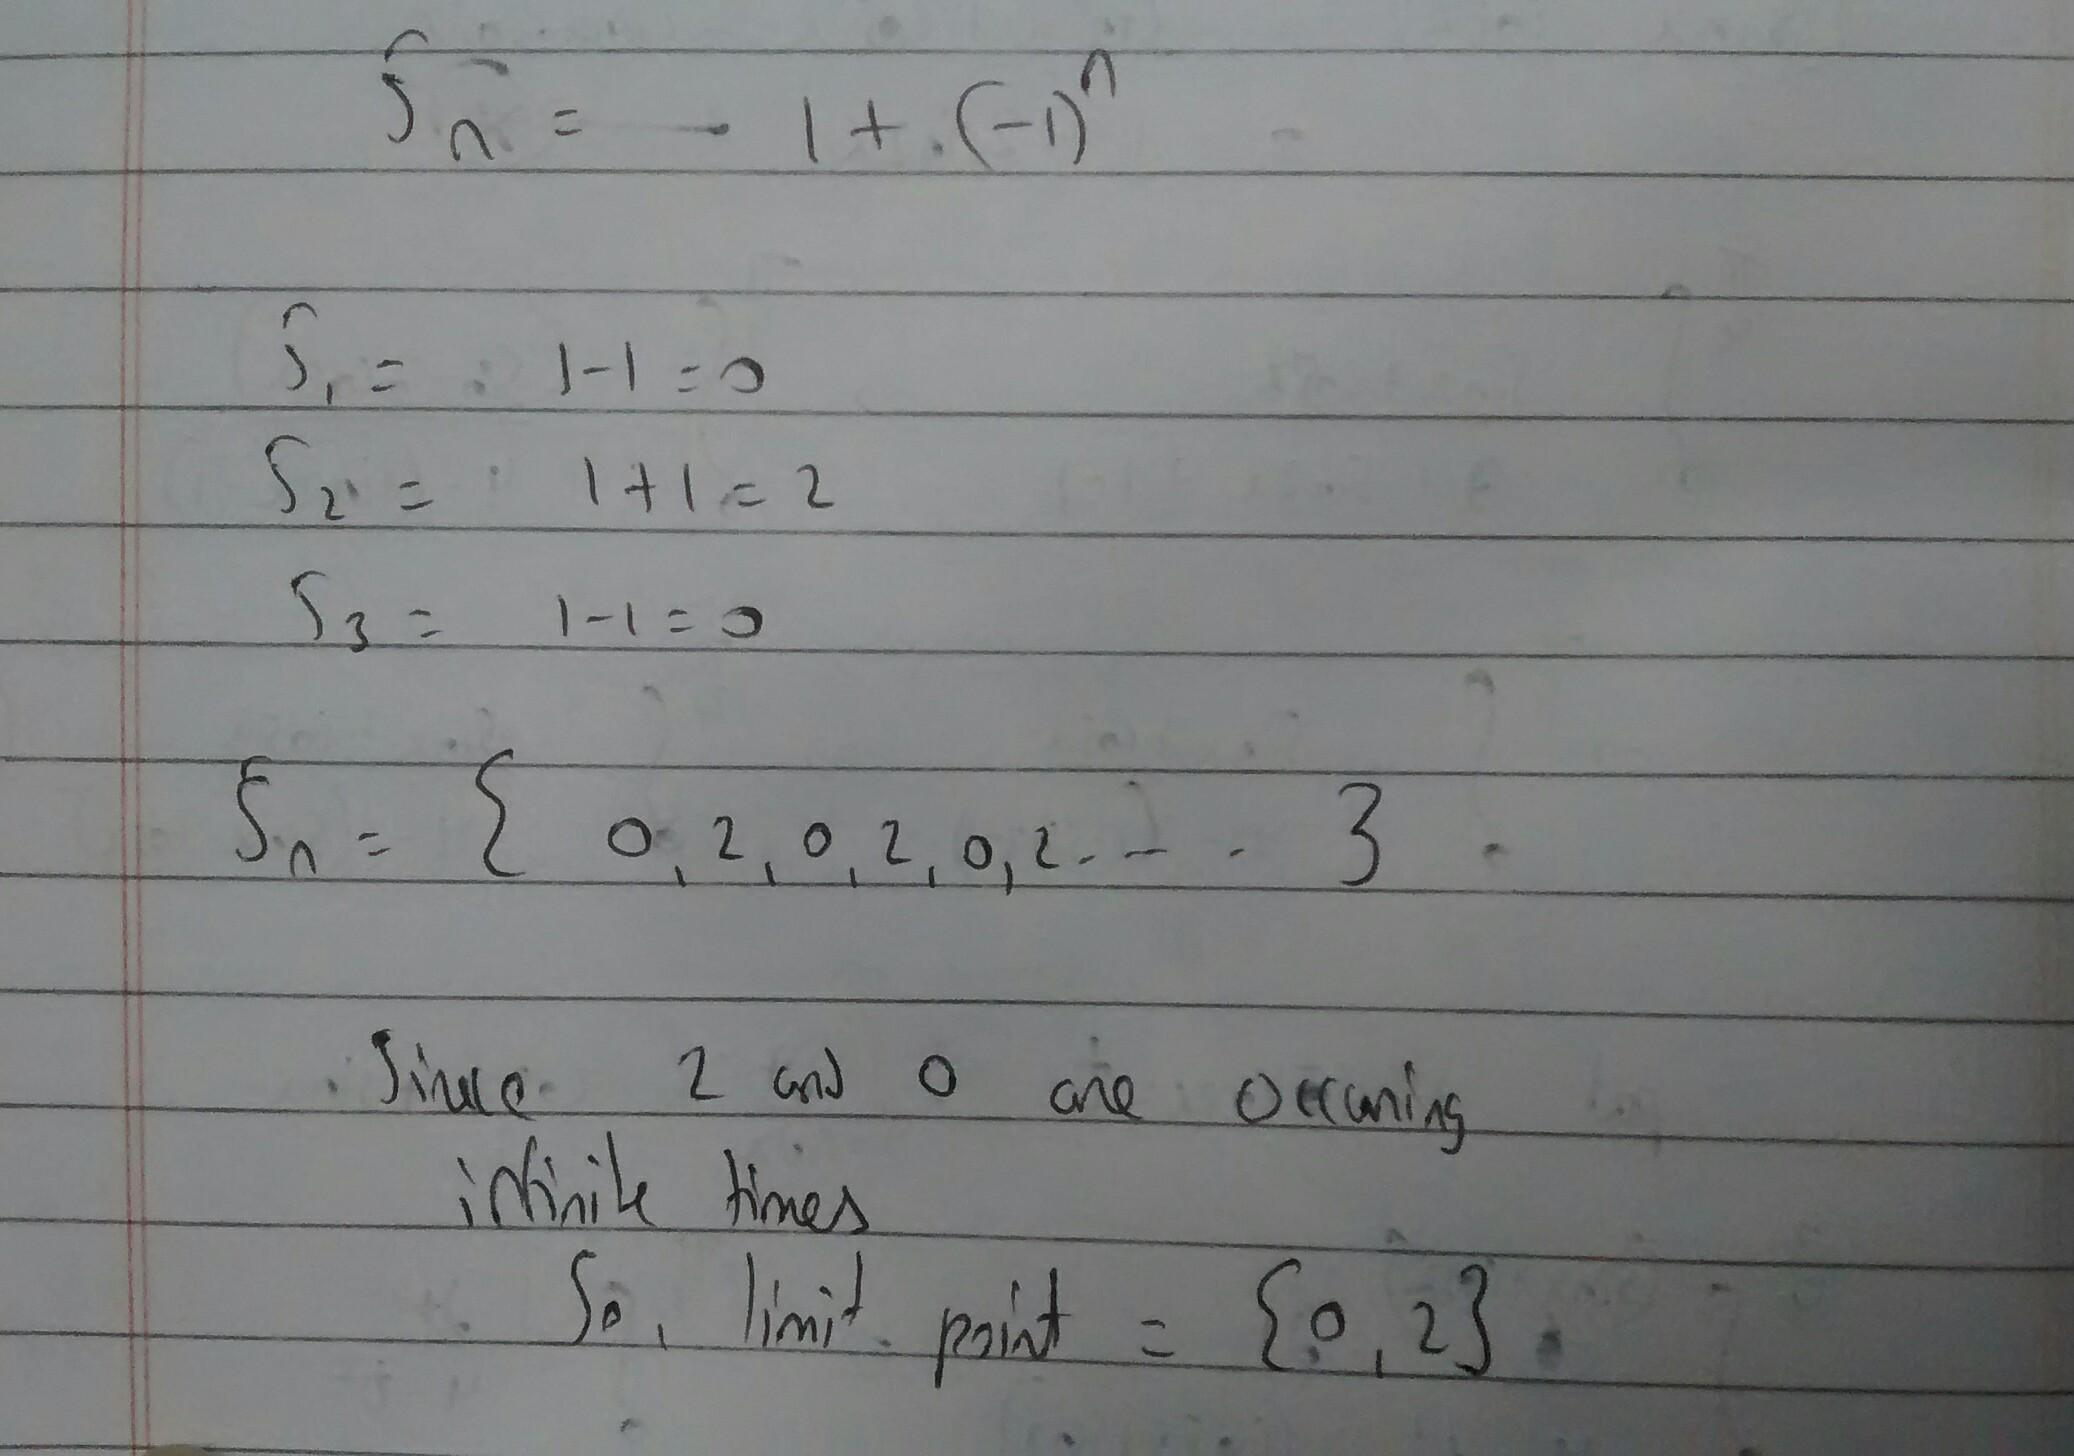 Sn = 1 + (-1)^n
S1 = 1-1 = 0
S2 = 1+1 = 2
S3 = 1-1 = 0
Sn = { 0, 2, 0, 2, 0, 2 - - - }
Since 2 and 0 are occuring
infinite times
So, limit point = {0, 2}